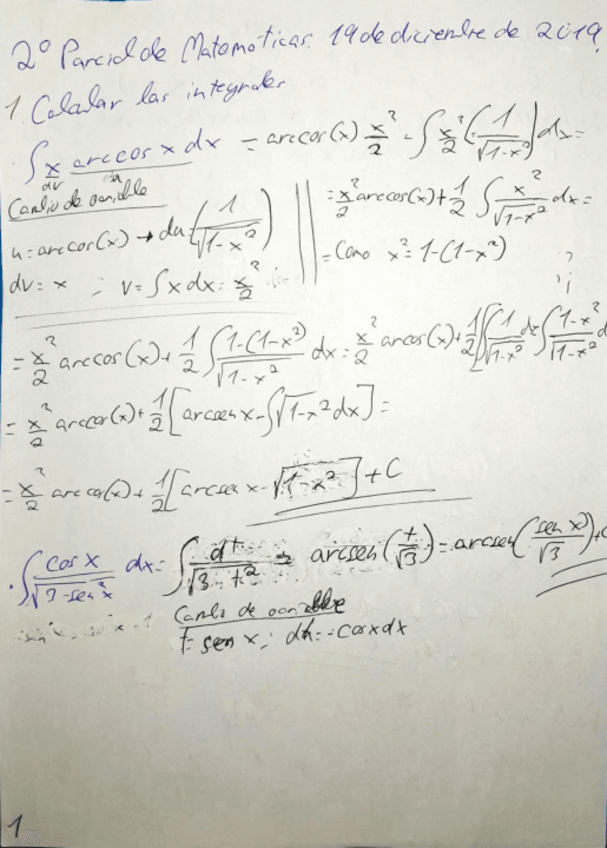 2º Parcial de Matemáticas. 19 de diciembre de 2019.
1. Calcular las integrales
∫ x arccos x dx = arccos(x) x²/2 - ∫ x²/2 (1/√1-x²) dx =
dv u
Cambio de variable
u = arccos(x) → du = (1/√1-x²)
dv = x ; v = ∫ x dx = x²/2
= x²/2 arccos(x) + 1/2 ∫ x²/√1-x² dx =
= Como x² = 1-(1-x²)
= x²/2 arccos(x) + 1/2 ∫ 1-(1-x²)/√1-x² dx = x²/2 arccos(x) + 1/2 [∫ 1/√1-x² dx ∫ 1-x²/√1-x² d
= x²/2 arccos(x) + 1/2 [arcsen x - ∫ √1-x² dx] =
= x²/2 arccos(x) + 1/2 [arcsen x - √1-x²] + C
· ∫ cos x/√3-sen²x dx = ∫ dt/√3-t² = arcsen (t/√3) = arcsen (sen x/√3) + C
Cambio de variable
t = sen x ; dt = -cosxdx
1